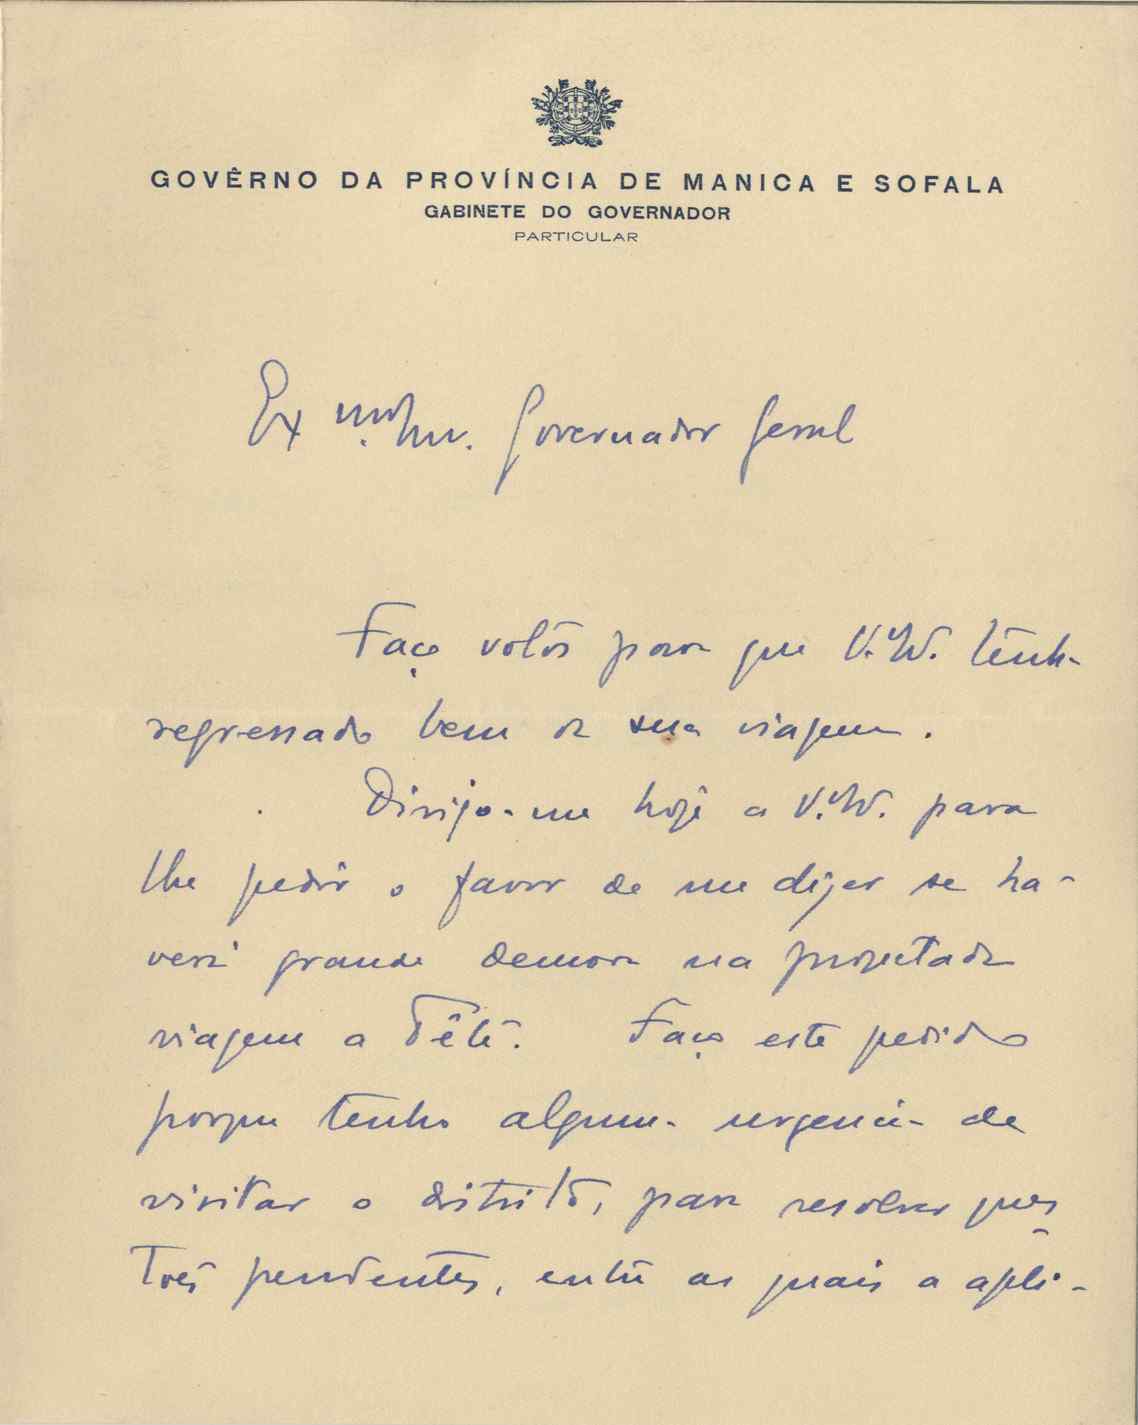 GOVÊRNO DA PROVÍNCIA DE MANICA E SOFALA
GABINETE DO GOVERNADOR
PARTICULAR
Exmo. Snr. Governador Geral
Faço votos para que V. Ex. tenha
regressado bem da sua viagem.
Dirijo-me hoje a V. Ex. para
lhe pedir o favor de me dizer se ha-
verá grande demora na projectada
viagem a Téte. Faço este pedido
porque tenho alguma urgencia de
visitar o distrito, para resolver ques-
tões pendentes, entre as quais a apli-